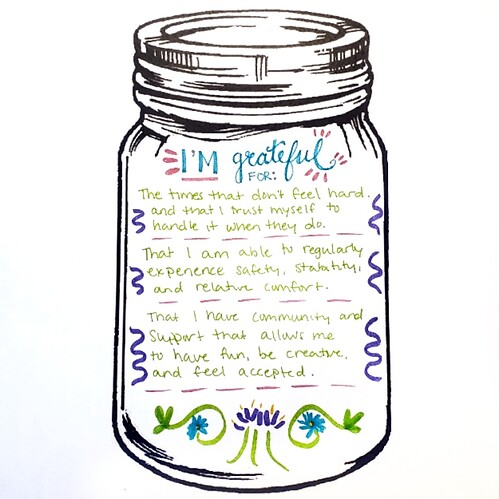 I'M grateful
FOR:
The times that don't feel hard.
and that I trust myself to
handle it when they do.
That I am able to regularly
experience safety, statatity,
and relative comfort.
That I have community and
Support that allows me
to have fun, be creative,
and feel accepted.